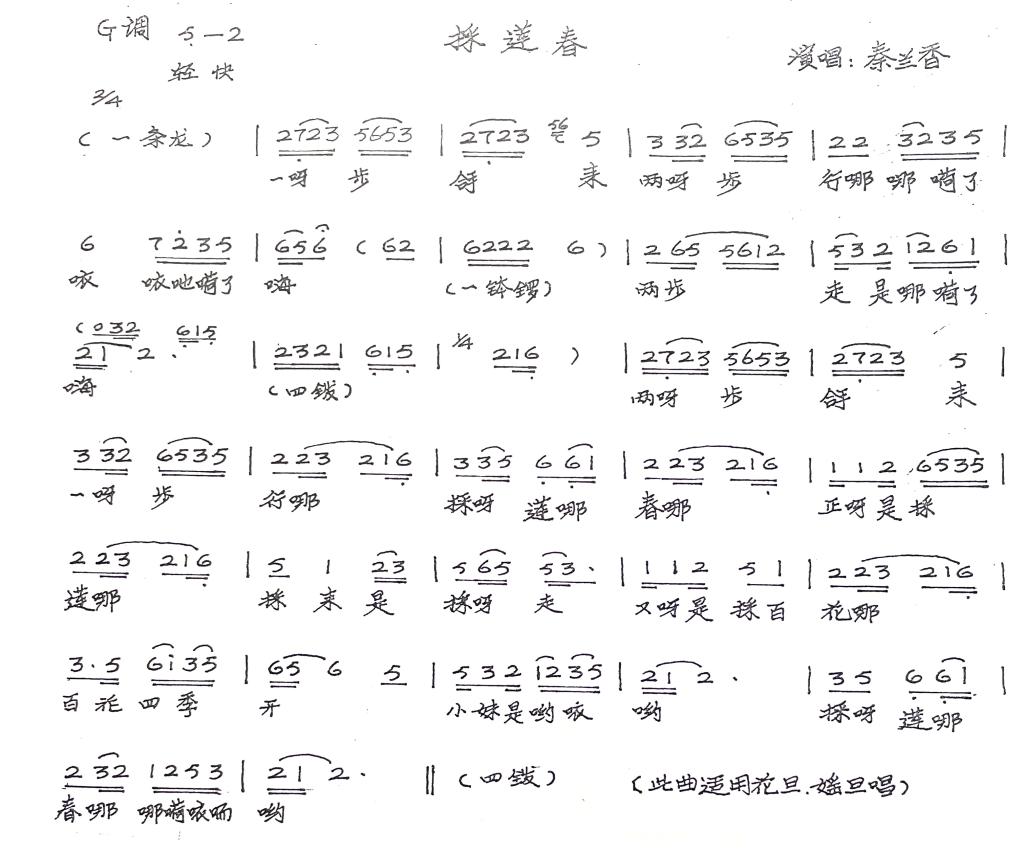 G调 5—2
採莲春
轻快
演唱：秦兰香
2/4
（一条龙） | 2723 5653 | 2723 56 5 | 3 32 6535 | 22 3235 |
一呀 步 合呀 来 两呀 步 行哪 哪嗬了
6 7235 | 656 （62 | 6222 6） | 2 65 5612 | 532 1261 |
咳 咳吔嗬了 嗨 （一钵锣） 两步 走是哪嗬了
（032 615
21 2. | 2321 615 | 1/4 216 ） | 2723 5653 | 2723 5 |
嗨 （四钹） 两呀 步 合呀 来
3 32 6535 | 2 23 216 | 3 35 6 61 | 2 23 216 | 1 1 2 6535 |
一呀 步 行哪 採呀 莲哪 春哪 正呀是採
2 23 216 | 5 1 23 | 5 65 53. | 1 1 2 5 1 | 2 23 216 |
莲哪 採来是 採呀 走 又呀是採百 花哪
3.5 6i35 | 65 6 5 | 5 3 2 1235 | 21 2. | 35 6 61 |
百花四季 开 小妹是哟咳 哟 採呀 莲哪
2 32 1253 | 21 2. ‖ （四钹） （此曲适用花旦.媱旦唱）
春哪 哪嗬咳 哟